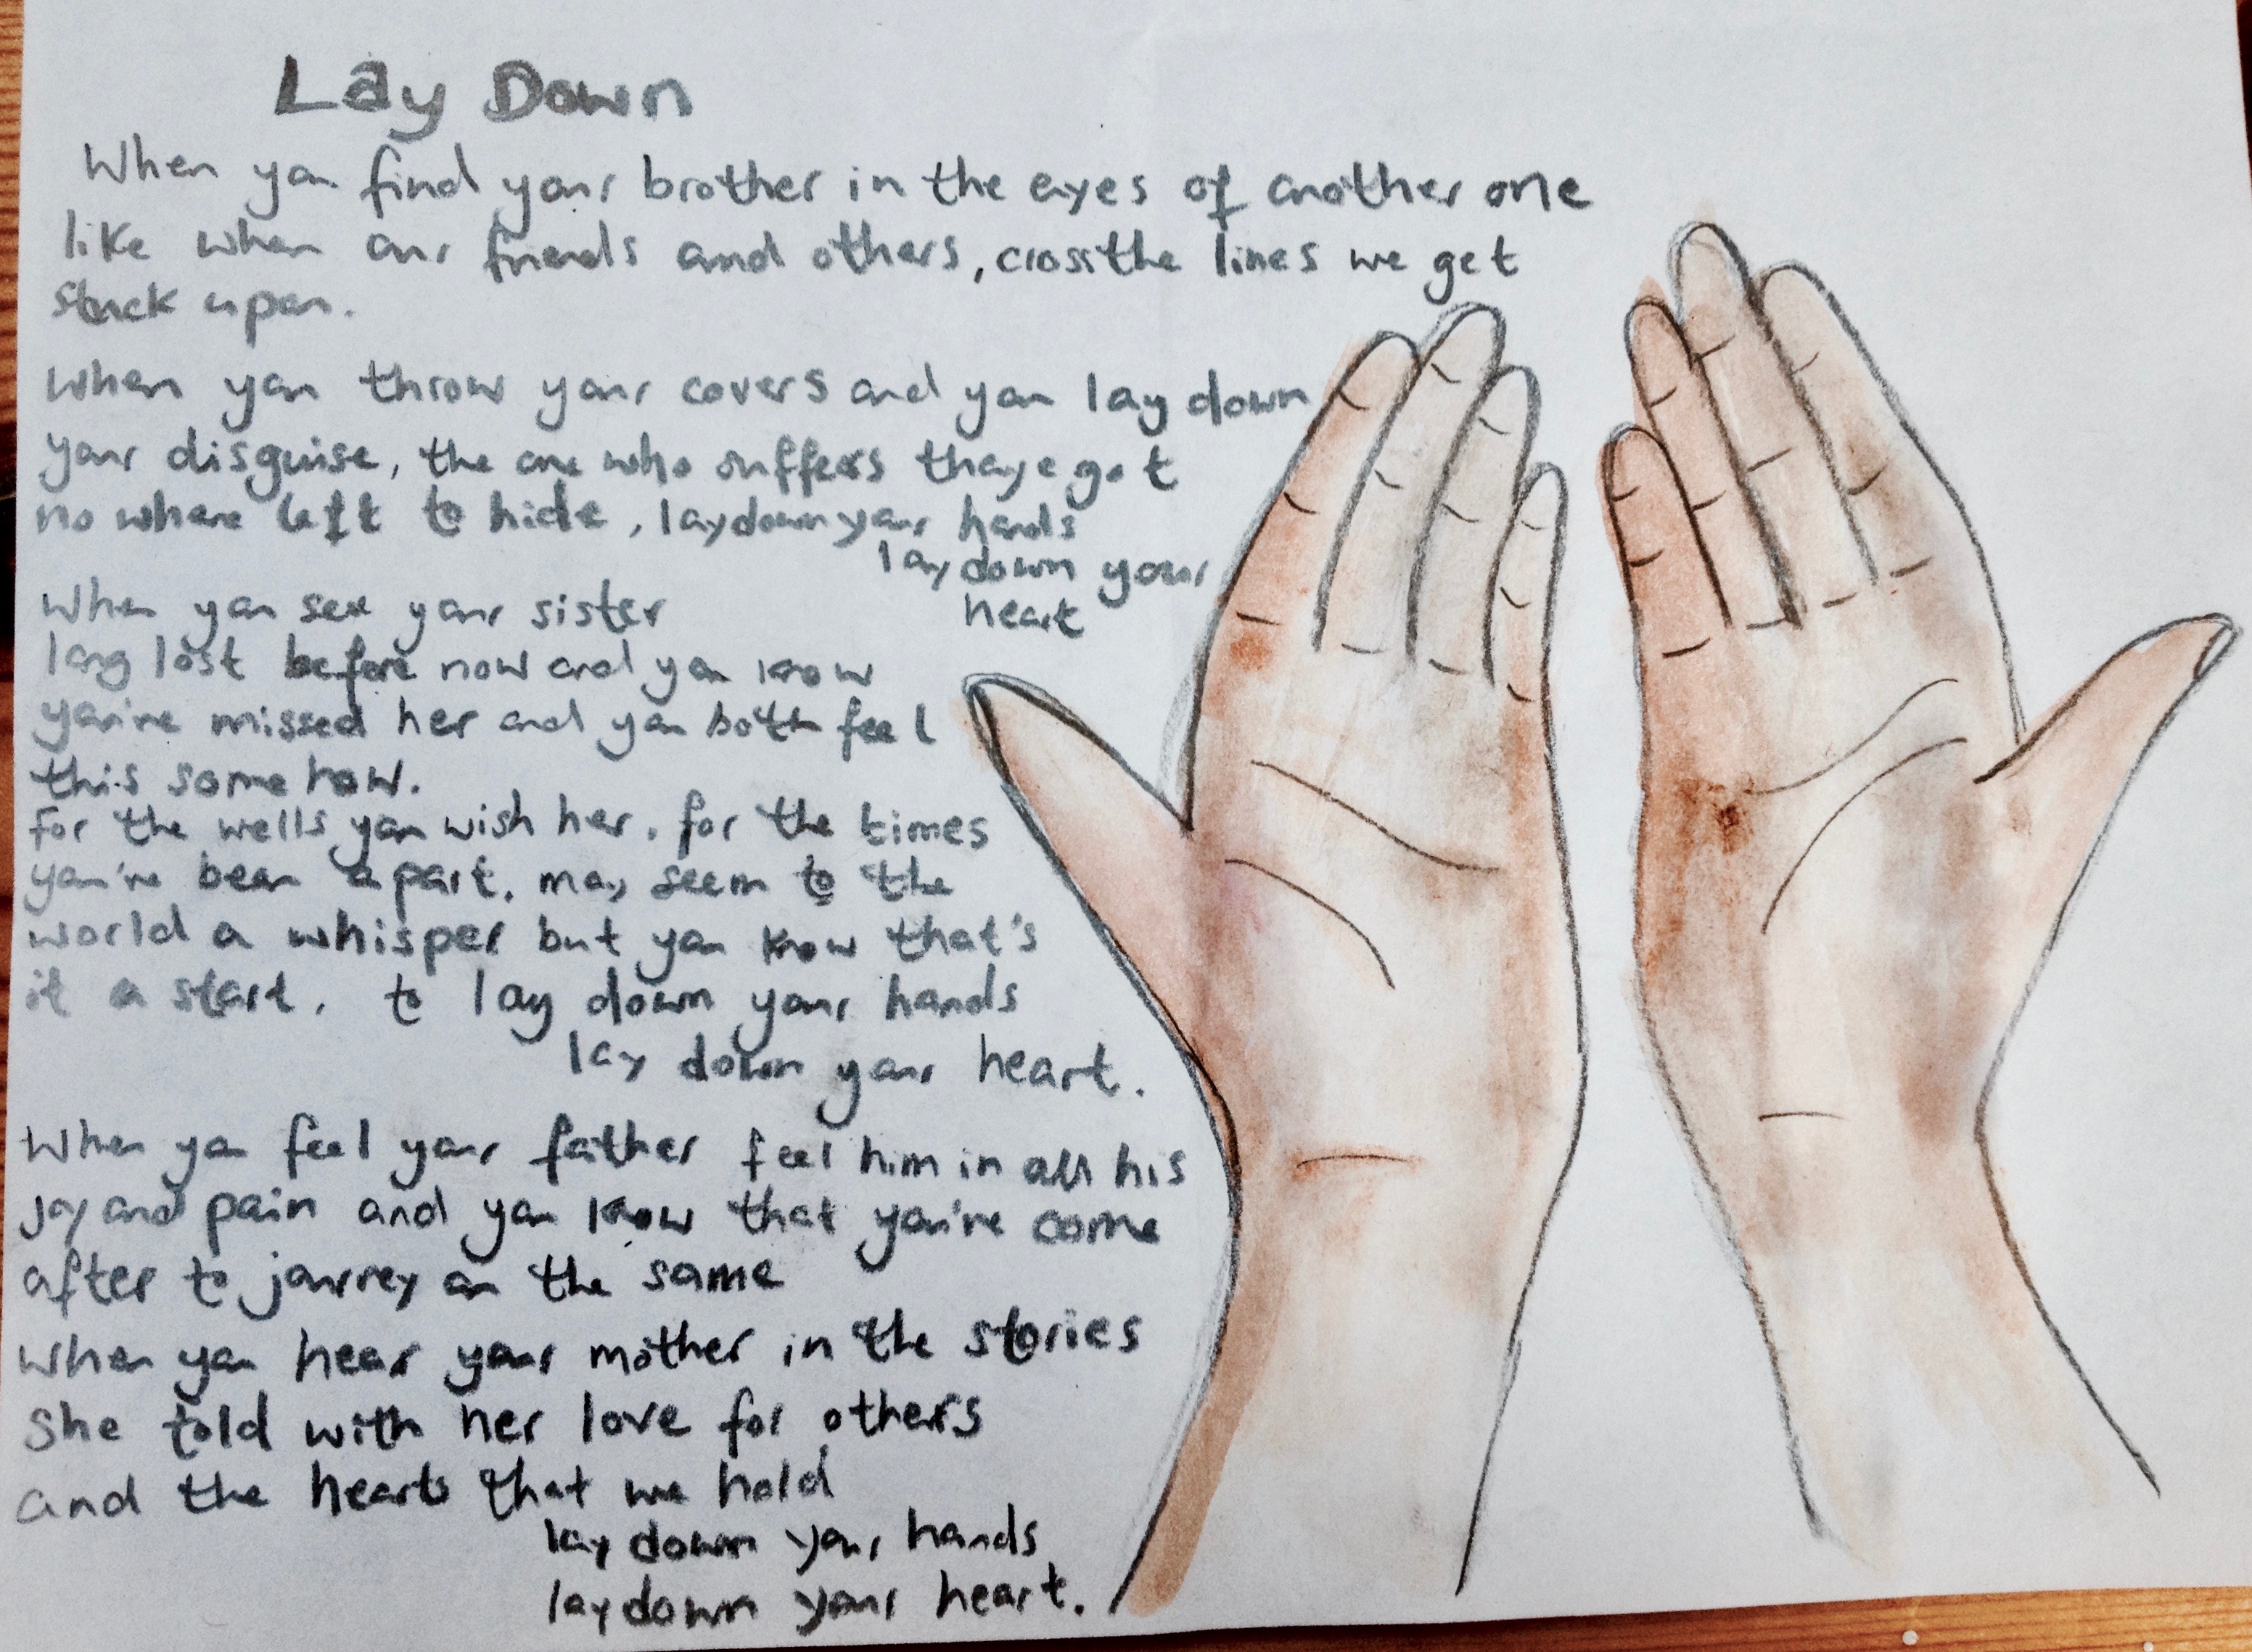 Lay Down
When you find your brother in the eyes of another one
like when our friends and others, cross the lines we get
stuck upon.
When you throw your covers and you lay down
your disguise, the one who suffers theyve got
no where left to hide, laydown your hands
lay down your
heart
When you see your sister
long lost before now and you know
you've missed her and you both feel
this some how.
For the wells you wish her. for the times
you've been apart. may seem to the
world a whisper but you know that's
it a start. to lay down your hands
lay down your heart.
When you feel your father feel him in all his
joy and pain and you know that you've come
after to journey on the same
When you hear your mother in the stories
She told with her love for others
and the hearts that we hold
lay down your hands
laydown your heart.